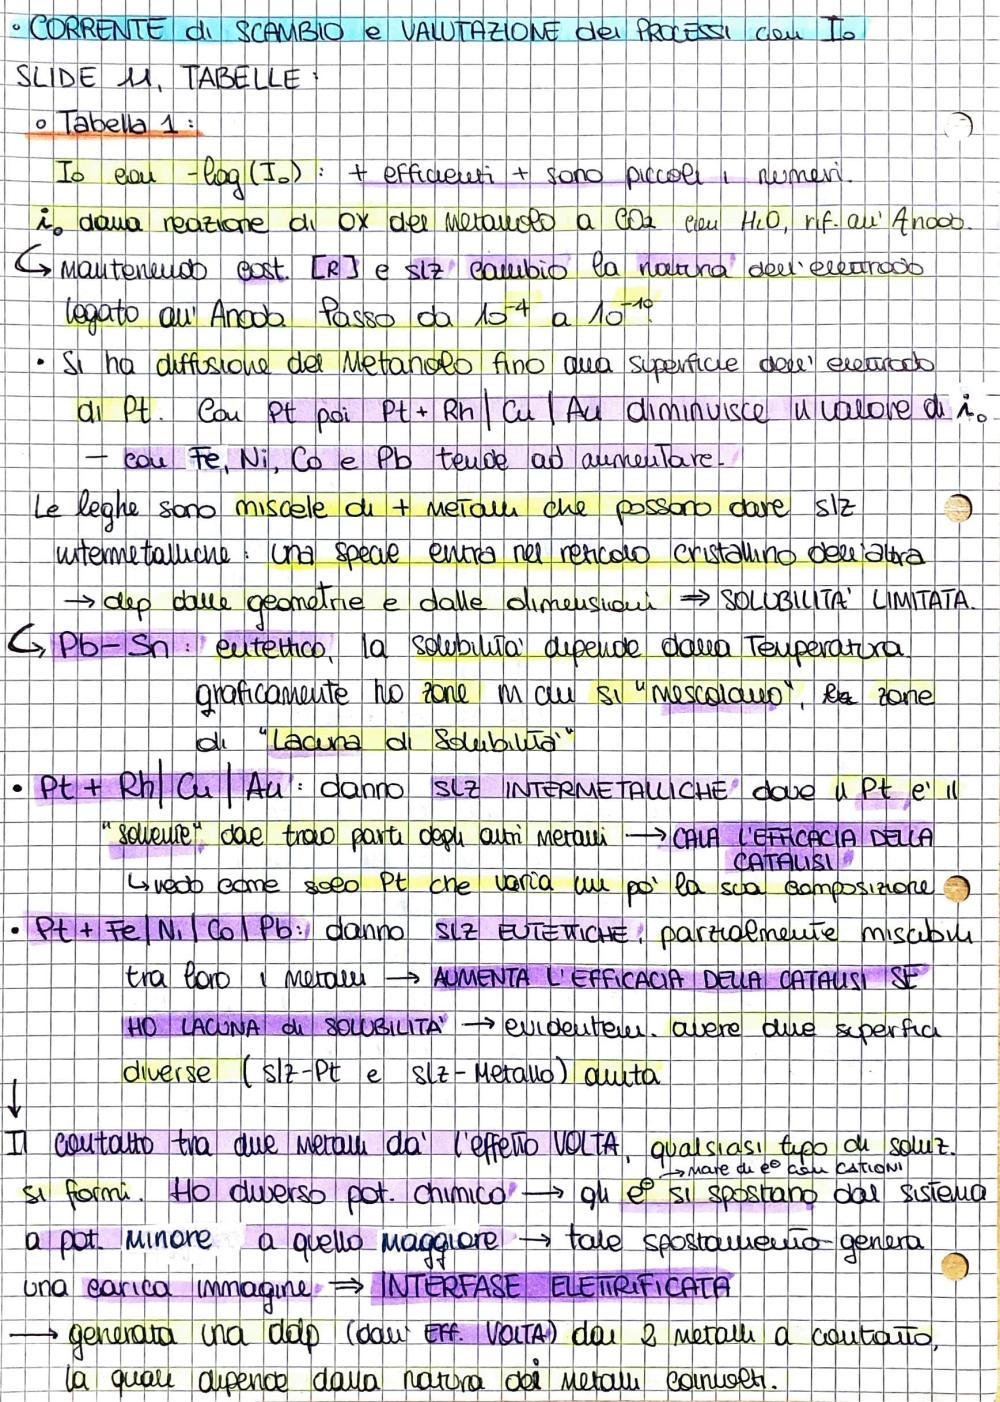 • CORRENTE di SCAMBIO e VALUTAZIONE dei PROCESSI con I₀
SLIDE 11, TABELLE:
o Tabella 1:
I₀ con -log(I₀): + efficienti + sono piccoli i numeri.
i₀ dalla reazione di OX del Metanolo a CO2 con H2O, rif. all' Anodo.
↳ mantenendo cost. [R] e slz cambio la natura dell'elettrodo
legato all' Anodo. Passo da 10⁻⁴ a 10⁻¹⁰.
• Si ha diffusione del Metanolo fino alla superficie dell' elettrodo
di Pt. Con Pt poi Pt + Rh | Cu | Au diminuisce il valore di i₀
– con Fe, Ni, Co e Pb tende ad aumentare.
Le leghe sono miscele di + metalli che possono dare slz
intermetalliche: una specie entra nel reticolo cristallino dell'altra
→ dip dalle geometrie e dalle dimensioni ⇒ SOLUBILITA' LIMITATA.
↳ Pb-Sn: eutettico, la solubilità dipende dalla Temperatura.
graficamente ho zone in cui si "mescolano", zone
di "Lacuna di Solubilità"
• Pt + Rh | Cu | Au: danno SLZ INTERMETALLICHE dove il Pt e' il
"solvente" dove trovo parti degli altri metalli → CALA L'EFFICACIA DELLA
CATALISI
↳ vedo come solo Pt che varia un po' la sua composizione
• Pt + Fe | Ni | Co | Pb: danno SLZ EUTETTICHE, parzialmente miscibili
tra loro i metalli → AUMENTA L'EFFICACIA DELLA CATALISI SE
HO LACUNA di SOLUBILITA' → evidentem. avere due superfici
diverse (slz-Pt e slz-Metallo) aiuta
↓
Il contatto tra due metalli da' l'effetto VOLTA, qualsiasi tipo di soluz.
→ mare di e⊖ con CATIONI
si formi. Ho diverso pot. chimico → gli e⊖ si spostano dal sistema
a pot. minore a quello maggiore → tale spostamento genera
una carica immagine ⇒ INTERFASE ELETTRIFICATA
→ generata una ddp (dall' EFF. VOLTA) dai 2 metalli a contatto,
la quale dipende dalla natura dei metalli coinvolti.